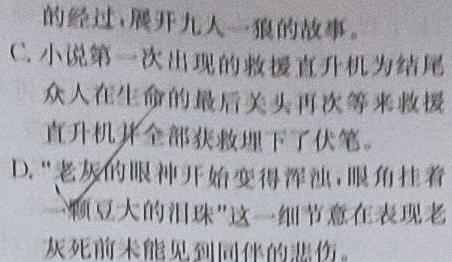 的经过,展开九人一狼的故事。
C. 小说第一次出现的救援直升机为结尾
众人在生命的最后关头再次等来救援
直升机并全部获救埋下了伏笔。
D. "老灰的眼神开始变得浑浊,眼角挂着
一颗豆大的泪珠"这一细节意在表现老
灰死前未能见到同伴的悲伤。